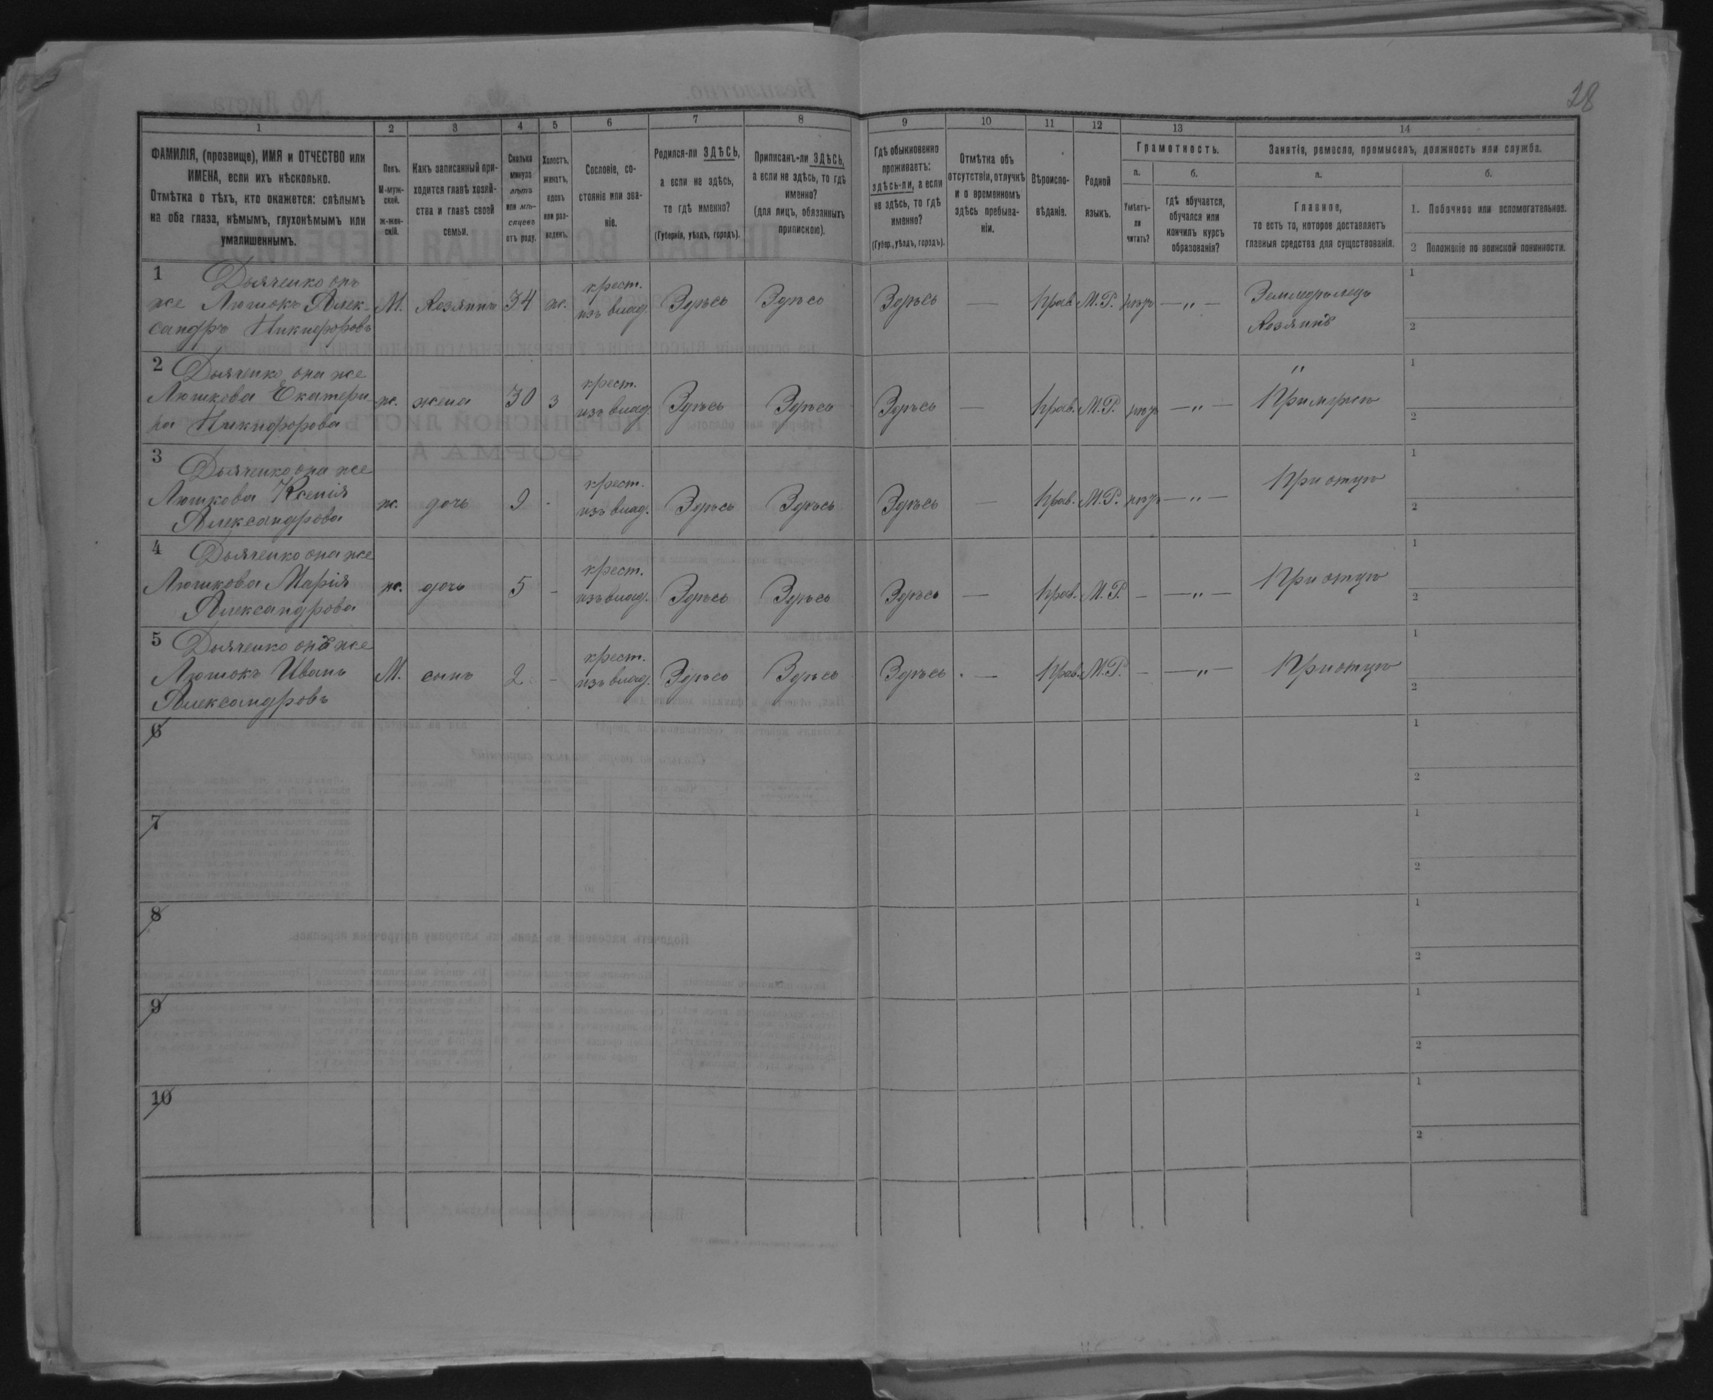 28
1
2
3
4
5
6
7
8
9
10
11
12
13
14
ФАМИЛІЯ, (прозвище), ИМЯ и ОТЧЕСТВО или
ИМЕНА, если ихъ нѣсколько.
Отмѣтка о тѣхъ, кто окажется: слѣпымъ
на оба глаза, нѣмымъ, глухонѣмымъ или
умалишеннымъ.
Полъ.
М-муж-
ской.
ж-жен-
скій.
Какъ записанный при-
ходится главѣ хозяй-
ства и главѣ своей
семьи.
Сколько
минуло
лѣтъ
или мѣ-
сяцевъ
отъ роду.
Холостъ,
женатъ,
вдовъ
или раз-
веденъ.
Сословіе, со-
стояніе или зва-
ніе.
Родился-ли ЗДѢСЬ,
а если не здѣсь,
то гдѣ именно?
(Губернія, уѣздъ, городъ).
Приписанъ-ли ЗДѢСЬ,
а если не здѣсь, то гдѣ
именно?
(для лицъ, обязанныхъ
припискою).
Гдѣ обыкновенно
проживаетъ:
здѣсь-ли, а если
не здѣсь, то гдѣ
именно?
(Губер., уѣздъ, городъ).
Отмѣтка объ
отсутствіи, отлучкѣ
и о временномъ
здѣсь пребыва-
ніи.
Вѣроиспо-
вѣданіе.
Родной
языкъ.
Грамотность.
а.
Умѣетъ-
ли
читать?
б.
гдѣ обучается,
обучался или
кончилъ курсъ
образованія?
Занятіе, ремесло, промыселъ, должность или служба.
а.
Главное,
то есть то, которое доставляетъ
главныя средства для существованія.
б.
1. Побочное или вспомогательное.
2 Положеніе по воинской повинности.
1 Дьяченко онъ
же Люшокъ Алек-
сандръ Никифоровъ
М. Хозяинъ 34 ж. крест.
изъ влад. Здѣсь Здѣсь Здѣсь — Прав. М.Р. нѣтъ — „ — Земледѣлецъ
Хозяинъ
1
2
2 Дьяченко она же
Люшкова Екатери
на Никифорова
ж. жена 30 з крест.
изъ влад. Здѣсь Здѣсь Здѣсь — Прав. М.Р. нѣтъ — „ — „
При мужѣ
1
2
3 Дьяченко она же
Люшкова Ксенія
Александрова
ж. дочь 9 - крест.
изъ влад. Здѣсь Здѣсь Здѣсь — Прав. М.Р. нѣтъ — „ — При отцѣ
1
2
4 Дьяченко она же
Люшкова Марія
Александрова
ж. дочь 5 - крест.
изъ влад. Здѣсь Здѣсь Здѣсь — Прав. М.Р. - — „ — При отцѣ
1
2
5 Дьяченко онъ же
Люшокъ Иванъ
Александровъ
М. сынъ 2 - крест.
изъ влад. Здѣсь Здѣсь Здѣсь. — Прав. М.Р. - — „ — При отцѣ
1
2
6
1
2
7
1
2
8
1
2
9
1
2
10
1
2